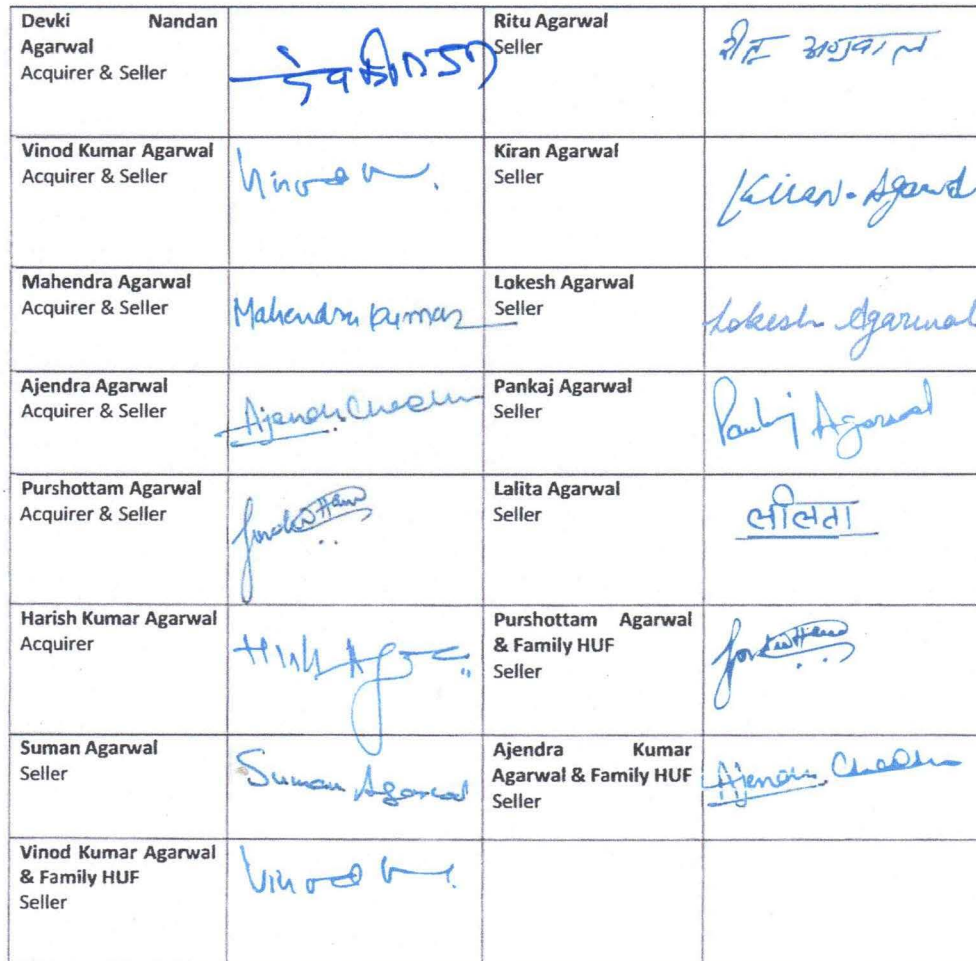 Devki Nandan
Agarwal
Acquirer & Seller
Ritu Agarwal
Seller
रीतु अग्रवाल
Vinod Kumar Agarwal
Acquirer & Seller
Kiran Agarwal
Seller
Kiran Agarwal
Mahendra Agarwal
Acquirer & Seller
Mahendra Kumar
Lokesh Agarwal
Seller
Lokesh Agarwal
Ajendra Agarwal
Acquirer & Seller
Pankaj Agarwal
Seller
Pankaj Agarwal
Purshottam Agarwal
Acquirer & Seller
Lalita Agarwal
Seller
ललिता
Harish Kumar Agarwal
Acquirer
Purshottam Agarwal
& Family HUF
Seller
Suman Agarwal
Seller
Suman Agarwal
Ajendra Kumar
Agarwal & Family HUF
Seller
Vinod Kumar Agarwal
& Family HUF
Seller